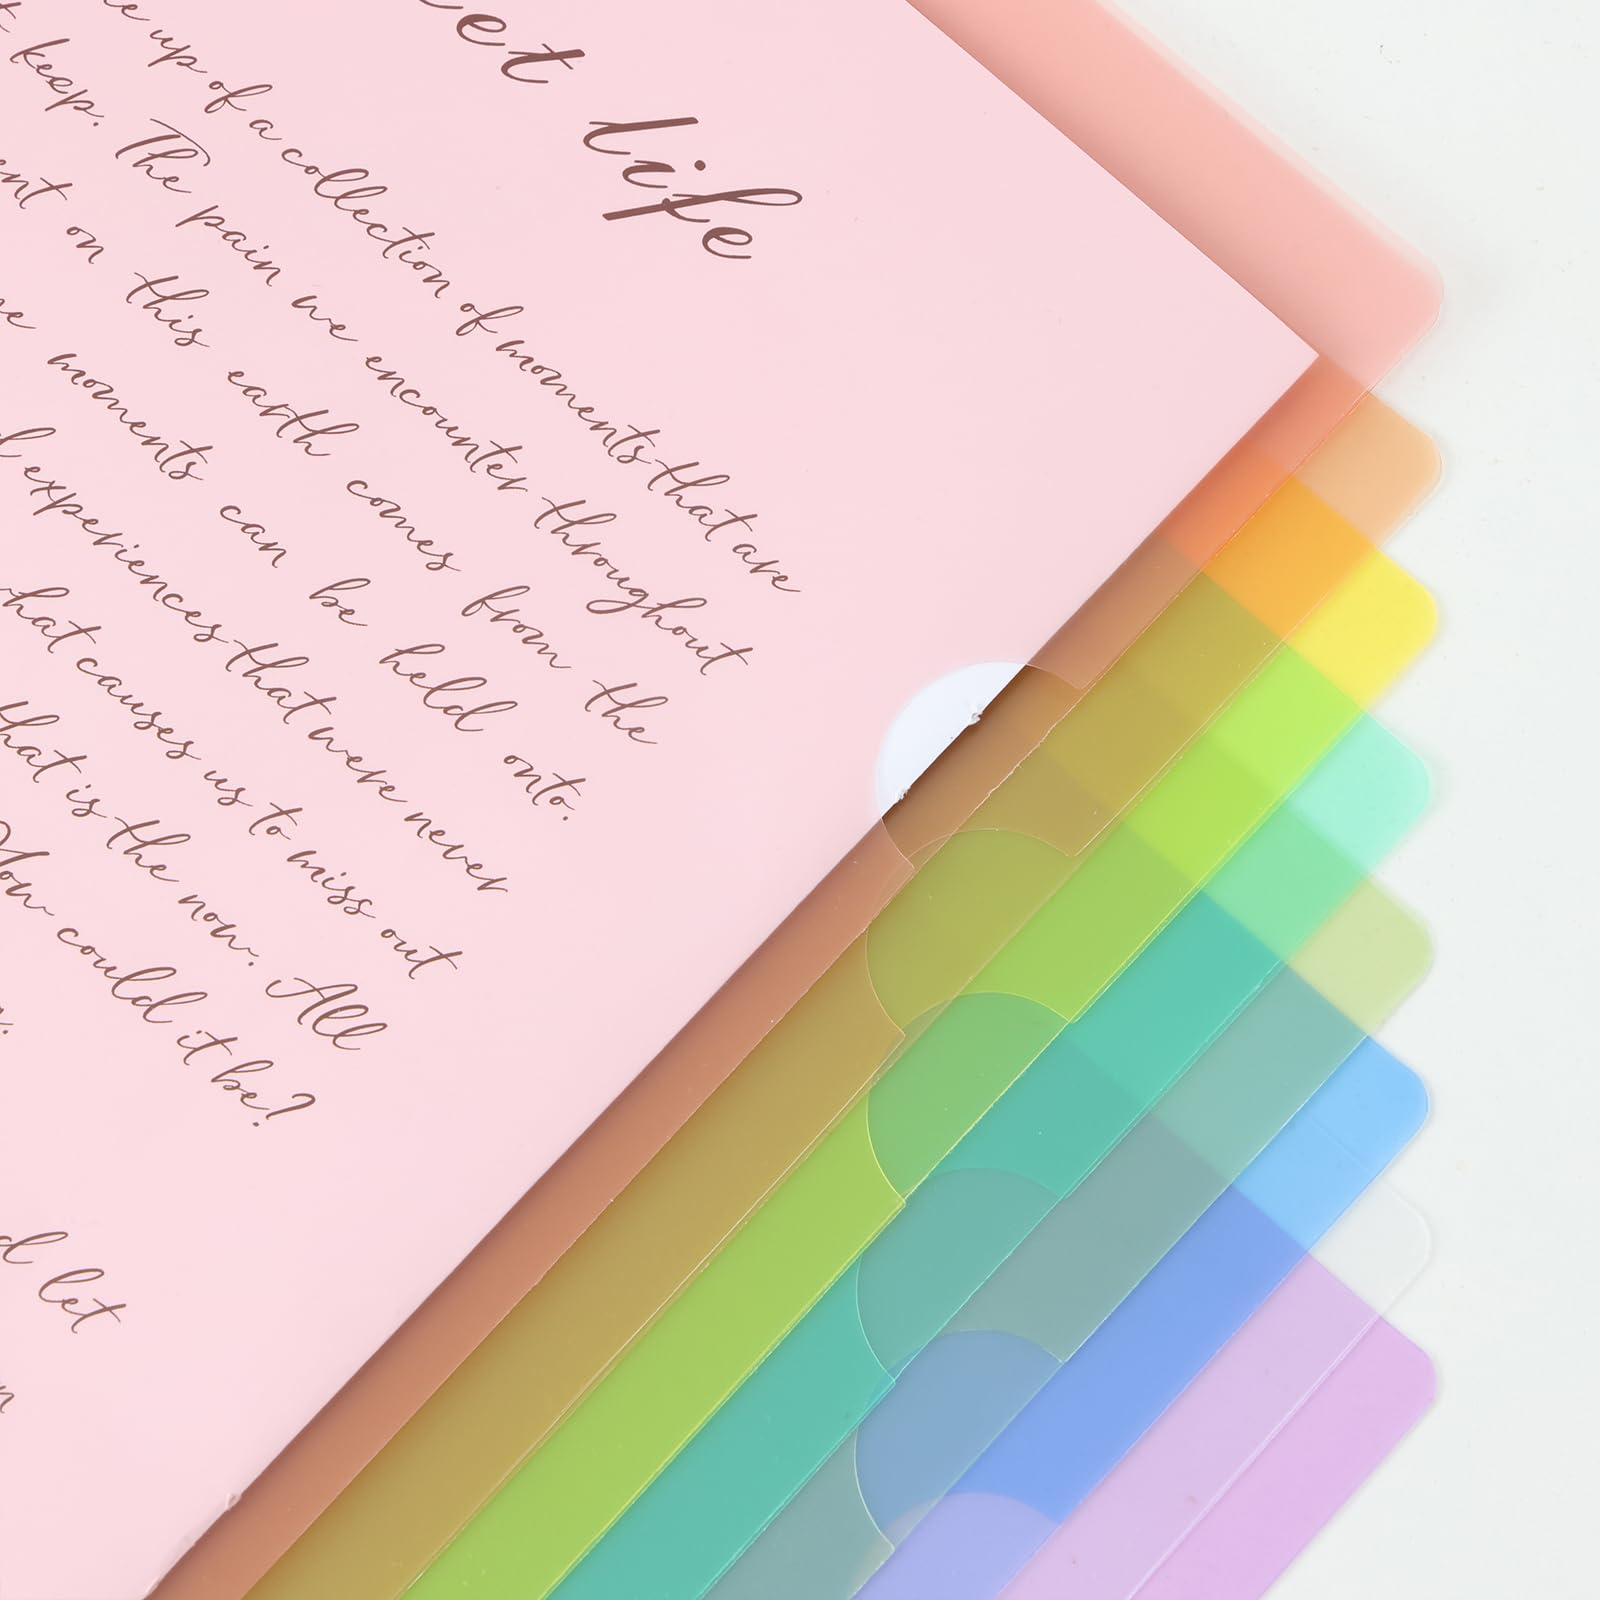 et life
up of a collection of moments that are
keep. The pain we encounter throughout
on this earth comes from the
moments can be held onto.
experiences that were never
what causes us to miss out
that is the now. All
How could it be?
let